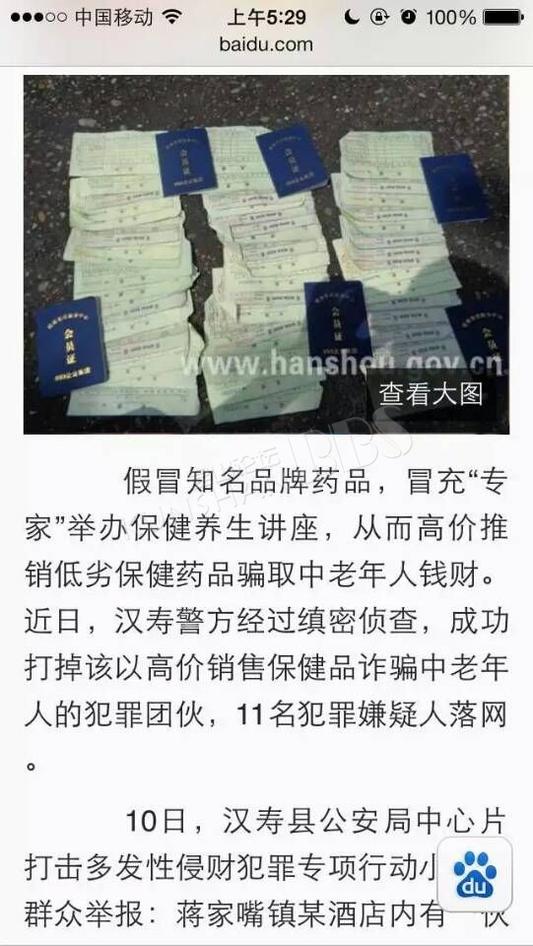 中国移动
上午5:29
100%
baidu.com
会员证
会员证
会员证
会员证
www.hanshou.gov.cn
查看大图
假冒知名品牌药品，冒充“专
家”举办保健养生讲座，从而高价推
销低劣保健药品骗取中老年人钱财。
近日，汉寿警方经过缜密侦查，成功
打掉该以高价销售保健品诈骗中老年
人的犯罪团伙，11名犯罪嫌疑人落网
。
10日，汉寿县公安局中心片
打击多发性侵财犯罪专项行动小
群众举报：蒋家嘴镇某酒店内有一伙
du